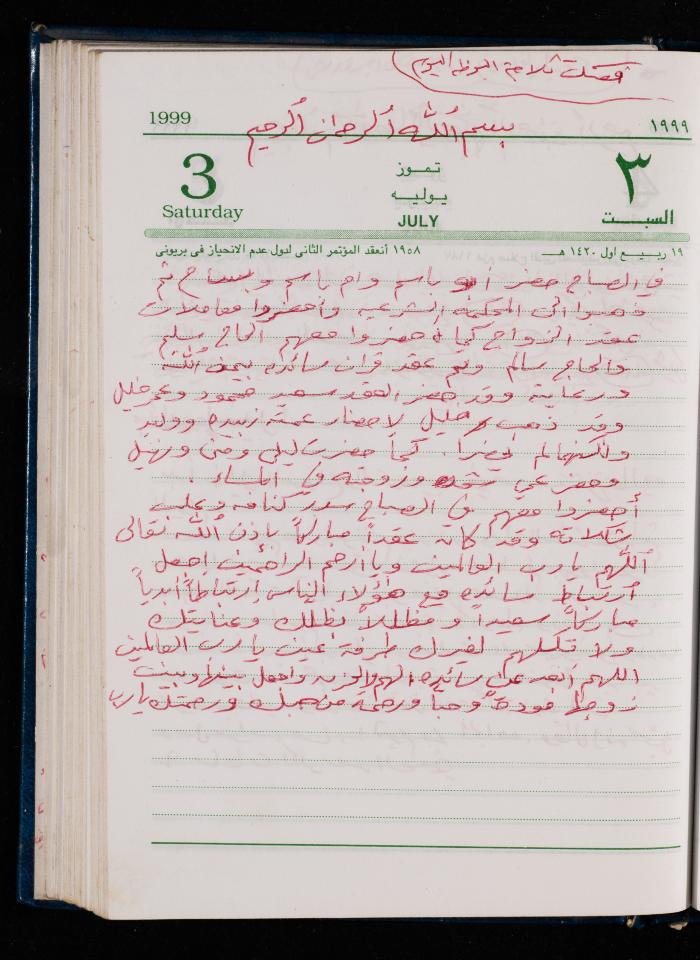 فصلت ثلاجة البوظه اليوم
1999
١٩٩٩
بسم الله الرحمان الرحيم
3
تموز
٣
Saturday
يوليه
السبت
JULY
١٩ ربيع اول ١٤٢٠ هـ
١٩٥٨ أنعقد المؤتمر الثانى لدول عدم الانحياز فى بريونى
في الصباح حضر ابو باسم وام باسم و ثم
ذهبوا الى المحكمة الشرعيه وأحضروا معاملات
عقد الزواج كما احضروا معهم الحاج سليم
والحاج سالم وتم عقد قران سائده بحمد الله
ورعايته وقد حضر العقد سعيد حمود وعمر خليل
وقد ذهب خليل لاحضار عمته زبيده ووليد
ولكنهما لم يحضرا. كما حضرت ليلى ومنى ونهيل
وحضر عمي وزوجته في المساء.
أحضروا معهم في الصباح سدر كنافه وعلب
شكلاته وقد كان عقداً مباركاً بإذن الله تعالى
اللهم يا رب العالمين ويا أرحم الراحمين اجعل
ارتباط سائده مع هؤلاء الناس ارتباطاً أبدياً
مباركاً سعيداً ومظللاً بظلك وعنايتك
ولا تكلهم لغيرك طرفة عين يا رب العالمين
اللهم أبعد عن سائده الهم والحزن واجعل بينها وبين
زوجها مودة وحباً ورحمة من حبك ورحمتك يا رب